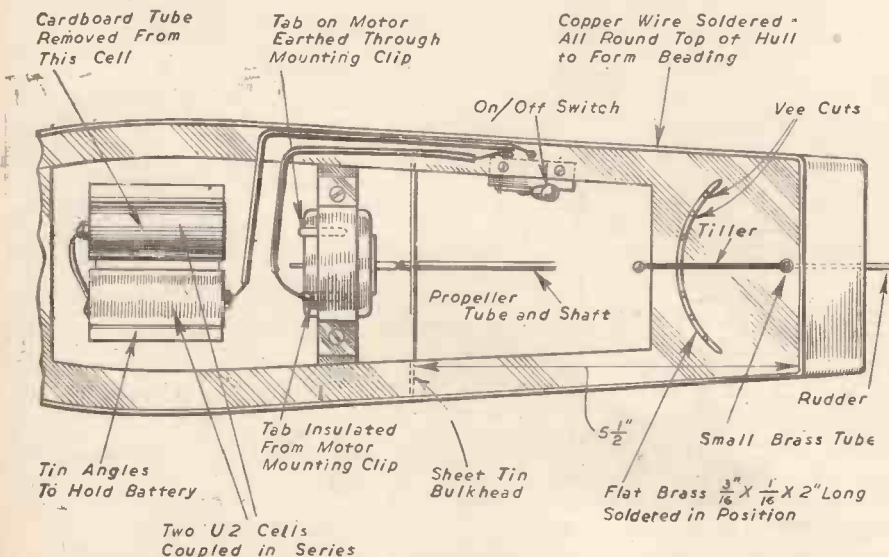 Cardboard Tube
Removed From
This Cell
Tab on Motor
Earthed Through
Mounting Clip
Copper Wire Soldered
All Round Top of Hull
to Form Beading
On/Off Switch
Vee Cuts
Tiller
Propeller
Tube and Shaft
Rudder
5 1/2"
Small Brass Tube
Tab Insulated
From Motor
Mounting Clip
Sheet Tin
Bulkhead
Tin Angles
To Hold Battery
Flat Brass 3/16" X 1/16" X 2" Long
Soldered in Position
Two U2 Cells
Coupled in Series